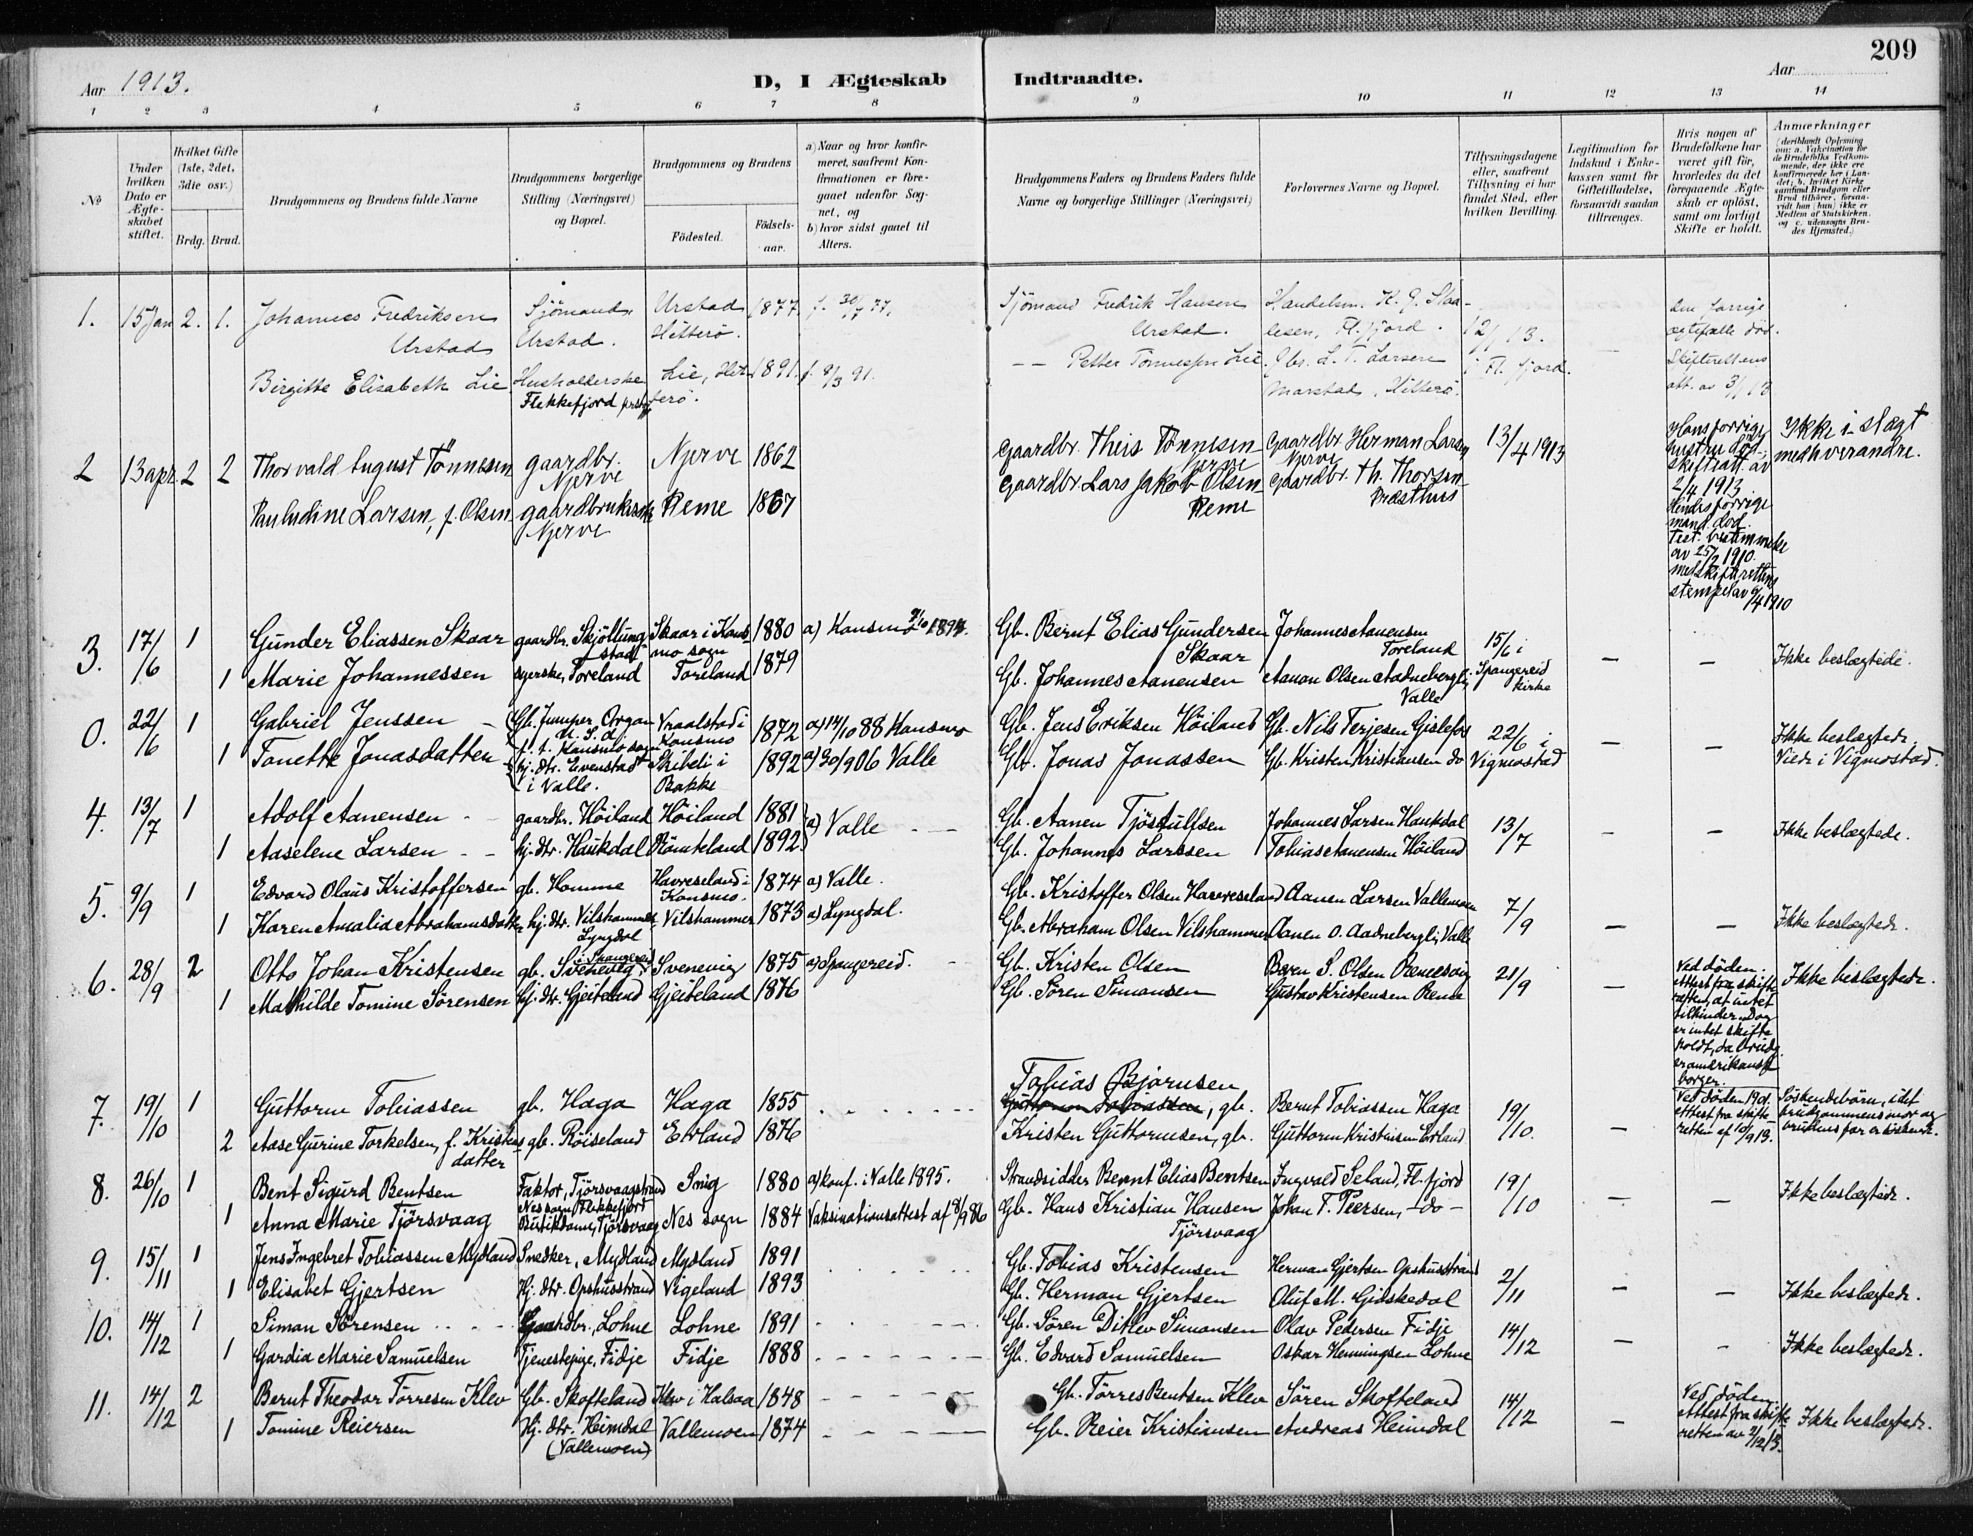 209
Aar 1913. D, I Ægteskab Indtraadte. Aar
1 2 3 4 5 6 7 8 9 10 11 12 13 14
№
Under hvilken Dato er Ægteskabet stiftet.
Hvilket Gifte (1ste, 2det, 3die osv.)
Brdg. Brud.
Brudgommens og Brudens fulde Navne
Brudgommens borgerlige Stilling (Næringsvei) og Bopæl.
Brudgommens og Brudens
Fødested. Fødselsaar.
a) Naar og hvor konfirmeret, saafremt Konfirmationen er foregaaet udenfor Sognet, og
b) hvor sidst gaaet til Alters.
Brudgommens Faders og Brudens Faders fulde Navne og borgerlige Stillinger (Næringsvei)
Forlovernes Navne og Bopæl.
Tillysningsdagene eller, saafremt Tillysning ei har fundet Sted, efter hvilken Bevilling.
Legitimation for Indskud i Enkekassen samt for Giftetilladelse, forsaavidt saadan tiltrænges.
Hvis nogen af Brudefolkene har været gift før, hvorledes da det foregaaende Ægteskab er opløst, samt om lovligt Skifte er holdt.
Anmærkninger (deriblandt Oplysning om: a. Vakcination for de Brudefolks Vedkommende, der ikke ere konfirmerede her i Landet; b. hvilket Kirkesamfund Brudgom eller Brud tilhører, forsaavidt han (hun) ikke er Medlem af Statskirken, og c. udensogns Brudes Hjemsted.)
1. 15 Jan 2. 1. Johannes Fredriksen Urstad Sjömand, Urstad. Urstad Hitterö. 1877. f. 30/7 77. Sjömand Fredrik Hansen Urstad. Handelsm. K. G. Staalesen, Fl.fjord. 12/1 13. i Fl.fjord. den forrige ægtefælle död. Skifterettens att. av 3/1 13
Birgitte Elisabeth Lie Husholderske Flekkefjord Lie, Hitterö. 1891. f. 8/3 91. Petter Tönnessen Lie. Gbr. L. T. Larsen Marstad, Hitterö.
2 13 apr. 2 2 Thorvald August Tönnesen gaardbr. Njerve Njerve 1862 gaardbr. Theis Tönnesen Njerve gaardbr. Herman Larsen Njerve 13/4 1913 Hans forrige hustru död skifteatt. av 2/4 1913. Hendes forrige mand död. Test. bestemmelse av 25/2 1910. med skifterettens stempel av 9/4 1910 Ikke i slægt med hverandre.
Pauludine Larsen, f. Olsen gaardbrukerske Njerve Reme 1867 gaardbr. Lars Jakob Olsen Reme gaardbr. Th. Thorsen Præsthus
3. 17/6 1 Gunder Eliassen Skaar gaardbr. Skjöllungstad Skaar i Konsmo sogn 1880 a) Konsmo Gb. Bernt Elias Gundersen Skaar Johannes Aanensen Toreland 15/6 i Spangereid kirke — — Ikke beslægtede.
1 Marie Johannessen syerske, Toreland Toreland 1879 Gb. Johannes Aanensen Aanon Olsen Aadnebergli, Valle
0. 22/6 1 Gabriel Jenssen Gb. Jumper, Oregon U. S. a. f. t. Konsmo sogn Vraalstad i Konsmo 1872 a) 14/10 88 Konsmo Gb. Jens Eriksen Höiland Gb. Nils Terjesen Gislefos 22/6 i Vigmostad — — Ikke beslægtede. Viede i Vigmostad.
1 Tonette Jonasdatter hj. dtr. Evenstad i Valle. Skibeli i Bakke 1892 a) 30/9 06 Valle Gb. Jonas Jonassen Gb. Kristen Kristiansen do
4. 13/7 1 Adolf Aanensen gaardbr. Höiland Höiland 1881 a) Valle Gb. Aanen Tjöstulfsen Johannes Larsen Haukdal 13/7 — — Ikke beslægtede.
1 Aaselene Larsen hj. dtr. Haukdal Römteland 1892 Gb. Johannes Larssen Tobias Aanensen Höiland
5. 9/9 1 Edvard Olaus Kristoffersen gb. Homme Havreseland i Konsmo. 1874 a) Valle. Gb. Kristoffer Olsen Havreseland Aanen Larsen Vallemoen 7/9 — — Ikke beslægtede.
1 Karen Amalia Abrahamsdatter hj. dtr. Vilshammer Lyngdal Vilshammer 1873 a) Lyngdal. Gb. Abraham Olsen Vilshammer Aanen O. Aadnebergli, Valle
6. 28/9 2 Otto Johan Kristensen gb. Svenevig, i Spangereid Svenevig 1875 a) Spangereid. Gb. Kristen Olsen Bern S. Olsen Remesvig 21/9 — Ved döden. Attest fra skifteretten, at intet til hinder. Dog er intet skifte holdt, da brudg. er amerikansk borger. Ikke beslægtede.
1 Mathilde Tomine Sörensen hj. dtr. Gjeiteland Gjeiteland 1876 Gb. Sören Simonsen Gustav Kristensen Reme
7. 19/10 1 Guttorm Tobiassen gb. Haga Haga 1855 Tobias Bjornsen Guttorm Tobiassen, gb. Bernt Tobiassen Haga 19/10. — Ved döden 1901. Attest fra skifteretten af 10/9 13. Söskendebörn, idet brudgommens mor og brudens far er söskende.
2 Aase Gurine Torkelsen, f. Kristensdatter gb. Röiseland Erland 1876 Kristen Guttormsen, gb. Guttorm Kristensen Erland
8. 26/10 1 Bent Sigurd Bentsen Faktor, Tjörsvaagstrand Nes sogn Flekkefjord Snig 1880 a) konf. i Valle 1895. Strandsidder Bernt Elias Bentsen Ingvald Seland, Fl.fjord 19/10 — — Ikke beslægtede.
1 Anna Marie Tjörsvaag Butikdame, Tjörsvaag Nes sogn 1884 Vaksinationsattest af 8/9 86 Gb. Hans Kristian Hansen Tjörsvaag Johan T. Peersen, -do-
9. 15/11 1 Jens Ingebret Tobiassen Mydland Snedker, Mydland Mydland 1891 Gb. Tobias Kristensen Herman Gjertsen Opshusstrand 2/11 — — Ikke beslægtede.
1 Elisabet Gjertsen Hj. dtr. Opshusstrand Vigeland 1893 Gb. Herman Gjertsen Oluf M. Gidskedal
10. 14/12 1 Simon Sörensen Gaardbr., Lohne Lohne 1891 Gb. Sören Ditlev Simonsen Olav Pedersen Fidje 14/12 — — Ikke beslægtede.
1 Gardia Marie Samuelsen Tjenestepige, Fidje Fidje 1888 Gb. Edvard Samuelsen Oskar Henningsen Lohne
11. 14/12 2 Bernt Theodor Törresen Klev Gb. Skofteland Klev i Halsaa 1848 Gb. Törres Bentsen Klev Sören Skofteland 14/12 — Ved döden Attest fra skifteretten av 2/12 13. Ikke beslægtede.
1 Tomine Reiersen Hj. dtr. Heimdal (Vallemoen) Vallemoen 1874 Gb. Reier Kristiansen Andreas Heimdal